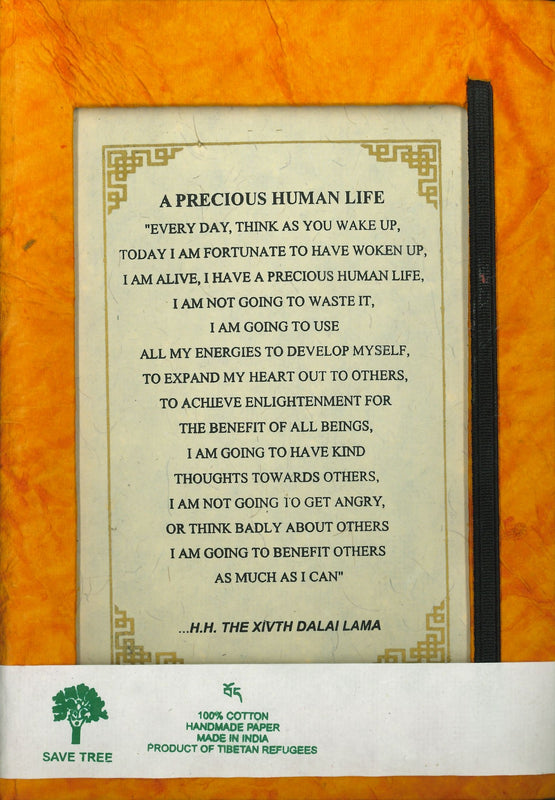 A PRECIOUS HUMAN LIFE
"EVERY DAY, THINK AS YOU WAKE UP,
TODAY I AM FORTUNATE TO HAVE WOKEN UP,
I AM ALIVE, I HAVE A PRECIOUS HUMAN LIFE,
I AM NOT GOING TO WASTE IT,
I AM GOING TO USE
ALL MY ENERGIES TO DEVELOP MYSELF,
TO EXPAND MY HEART OUT TO OTHERS,
TO ACHIEVE ENLIGHTENMENT FOR
THE BENEFIT OF ALL BEINGS,
I AM GOING TO HAVE KIND
THOUGHTS TOWARDS OTHERS,
I AM NOT GOING TO GET ANGRY,
OR THINK BADLY ABOUT OTHERS
I AM GOING TO BENEFIT OTHERS
AS MUCH AS I CAN"
...H.H. THE XIVTH DALAI LAMA
SAVE TREE
བོད
100% COTTON
HANDMADE PAPER
MADE IN INDIA
PRODUCT OF TIBETAN REFUGEES